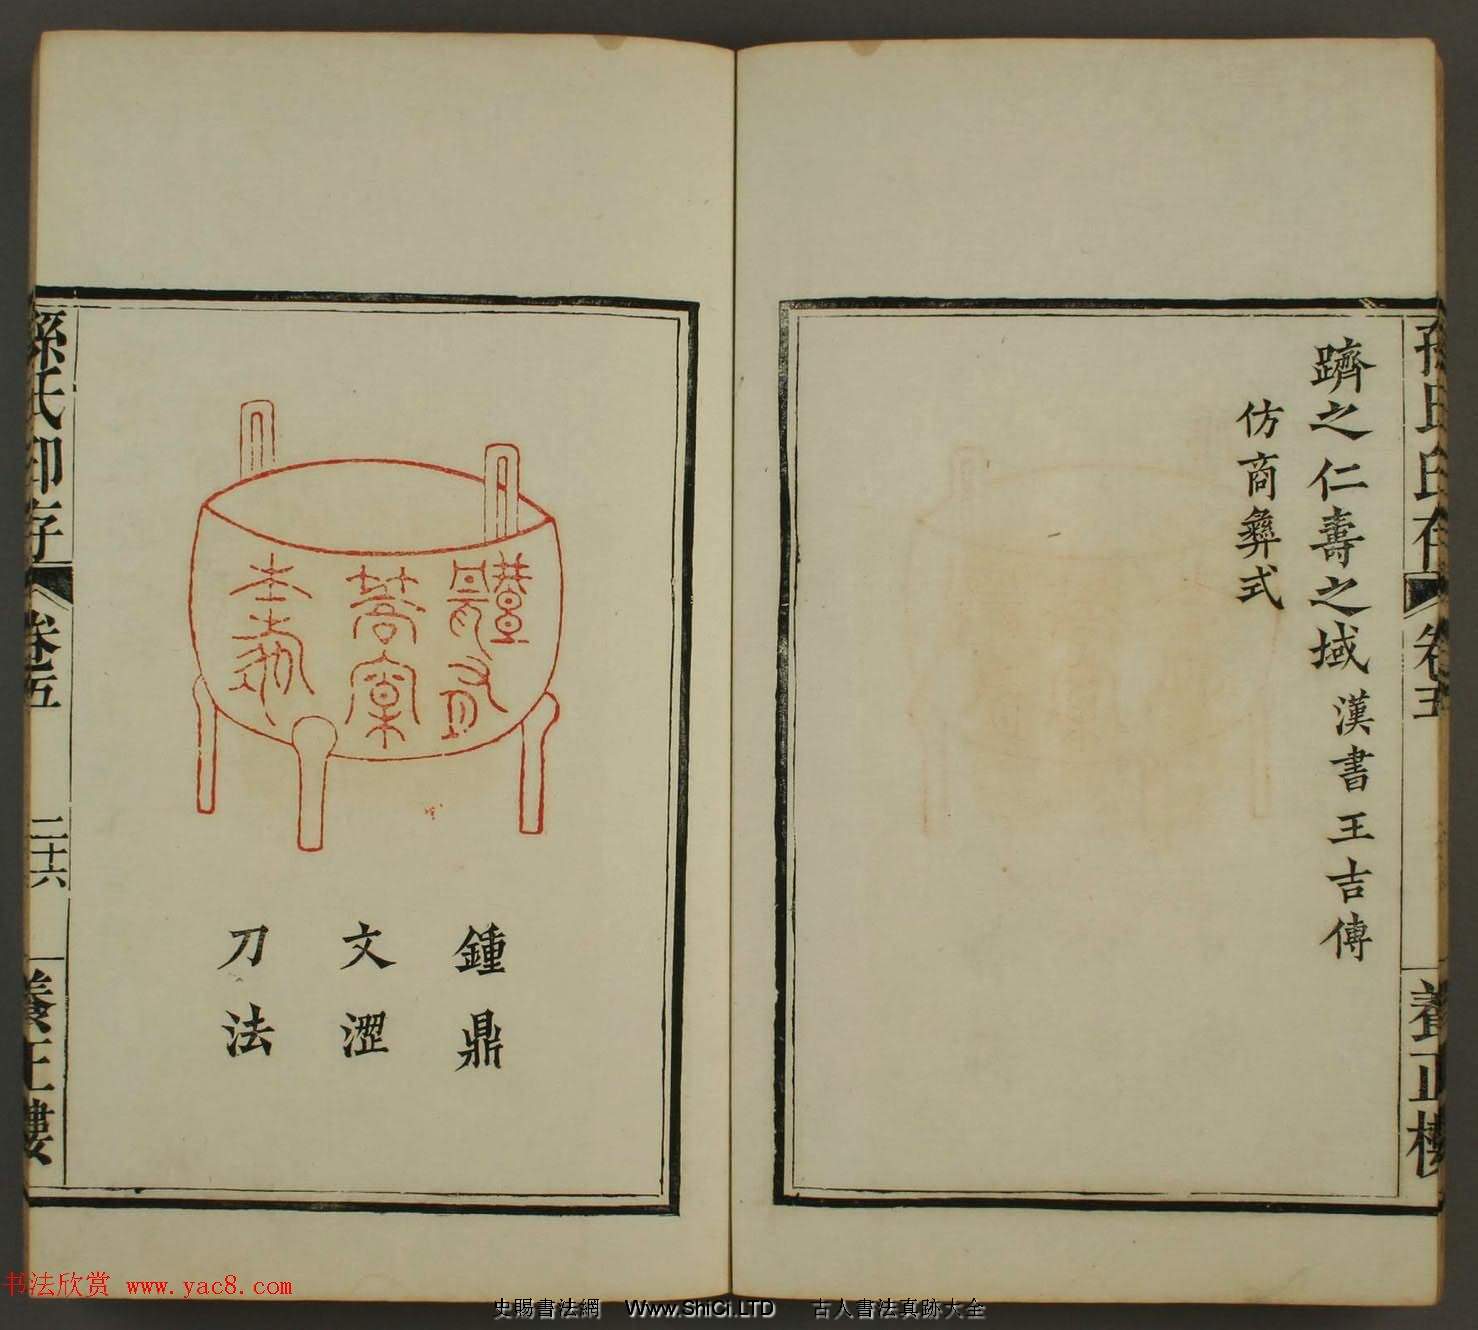 孫氏印存
卷五
養正樓
躋之仁壽之域漢書王吉傳
仿商彝式
鍾鼎
文澀
刀法
孫氏印存
卷五
二十六
養正樓
书法欣赏 www.yac8.com
史賜書法網 Www.ShiCi.LTD 古人書法真跡大全